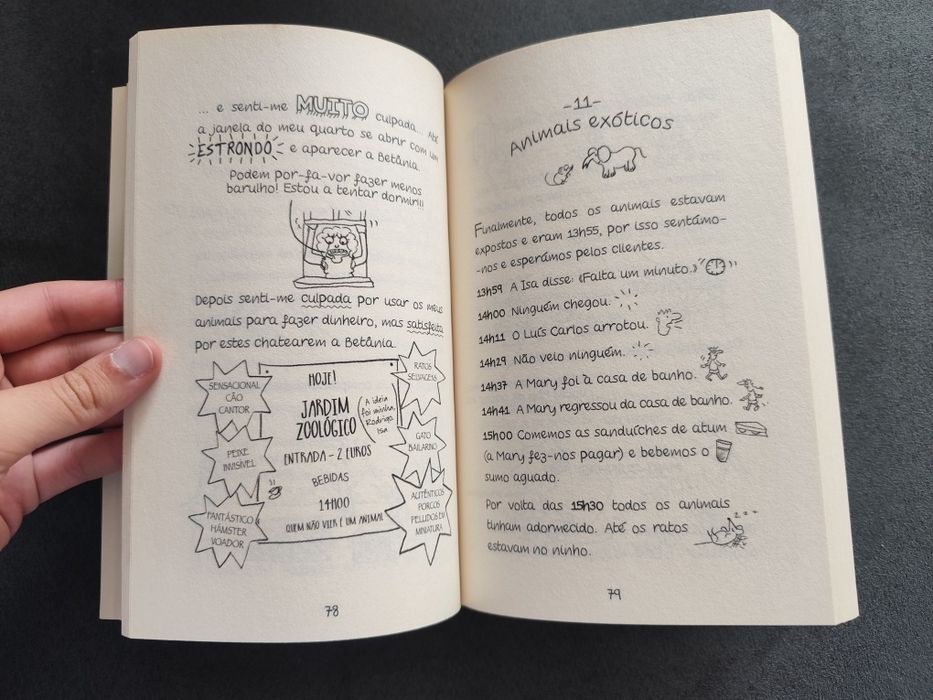 ... e senti-me MUITO culpada... Até
a janela do meu quarto se abrir com um
ESTRONDO e aparecer a Betânia.
Podem por-fa-vor fazer menos
barulho! Estou a tentar dormir!!!
Depois senti-me culpada por usar os meus
animais para fazer dinheiro, mas satisfeita
por estes chatearem a Betânia.
SENSACIONAL
CÃO
CANTOR
PEIXE
INVISÍVEL
FANTÁSTICO
HÁMSTER
VOADOR
HOJE!
JARDIM
ZOOLÓGICO
A ideia
foi minha,
Rodrigo.
Isa
ENTRADA – 2 EUROS
BEBIDAS
14H00
QUEM NÃO VIER É UM ANIMAL
RATOS
SELVAGENS
GATO
BAILARINO
AUTÊNTICOS
PORCOS
PELUDOS EM
MINIATURA
78
-11-
Animais exóticos
Finalmente, todos os animais estavam
expostos e eram 13h55, por isso sentámo-
-nos e esperámos pelos clientes.
13h59 A Isa disse: «Falta um minuto.»
14h00 Ninguém chegou.
14h11 O Luís Carlos arrotou.
14h29 Não veio ninguém.
14h37 A Mary foi à casa de banho.
14h41 A Mary regressou da casa de banho.
15h00 Comemos as sanduíches de atum
(a Mary fez-nos pagar) e bebemos o
sumo aguado.
Por volta das 15h30 todos os animais
tinham adormecido. Até os ratos
estavam no ninho.
79